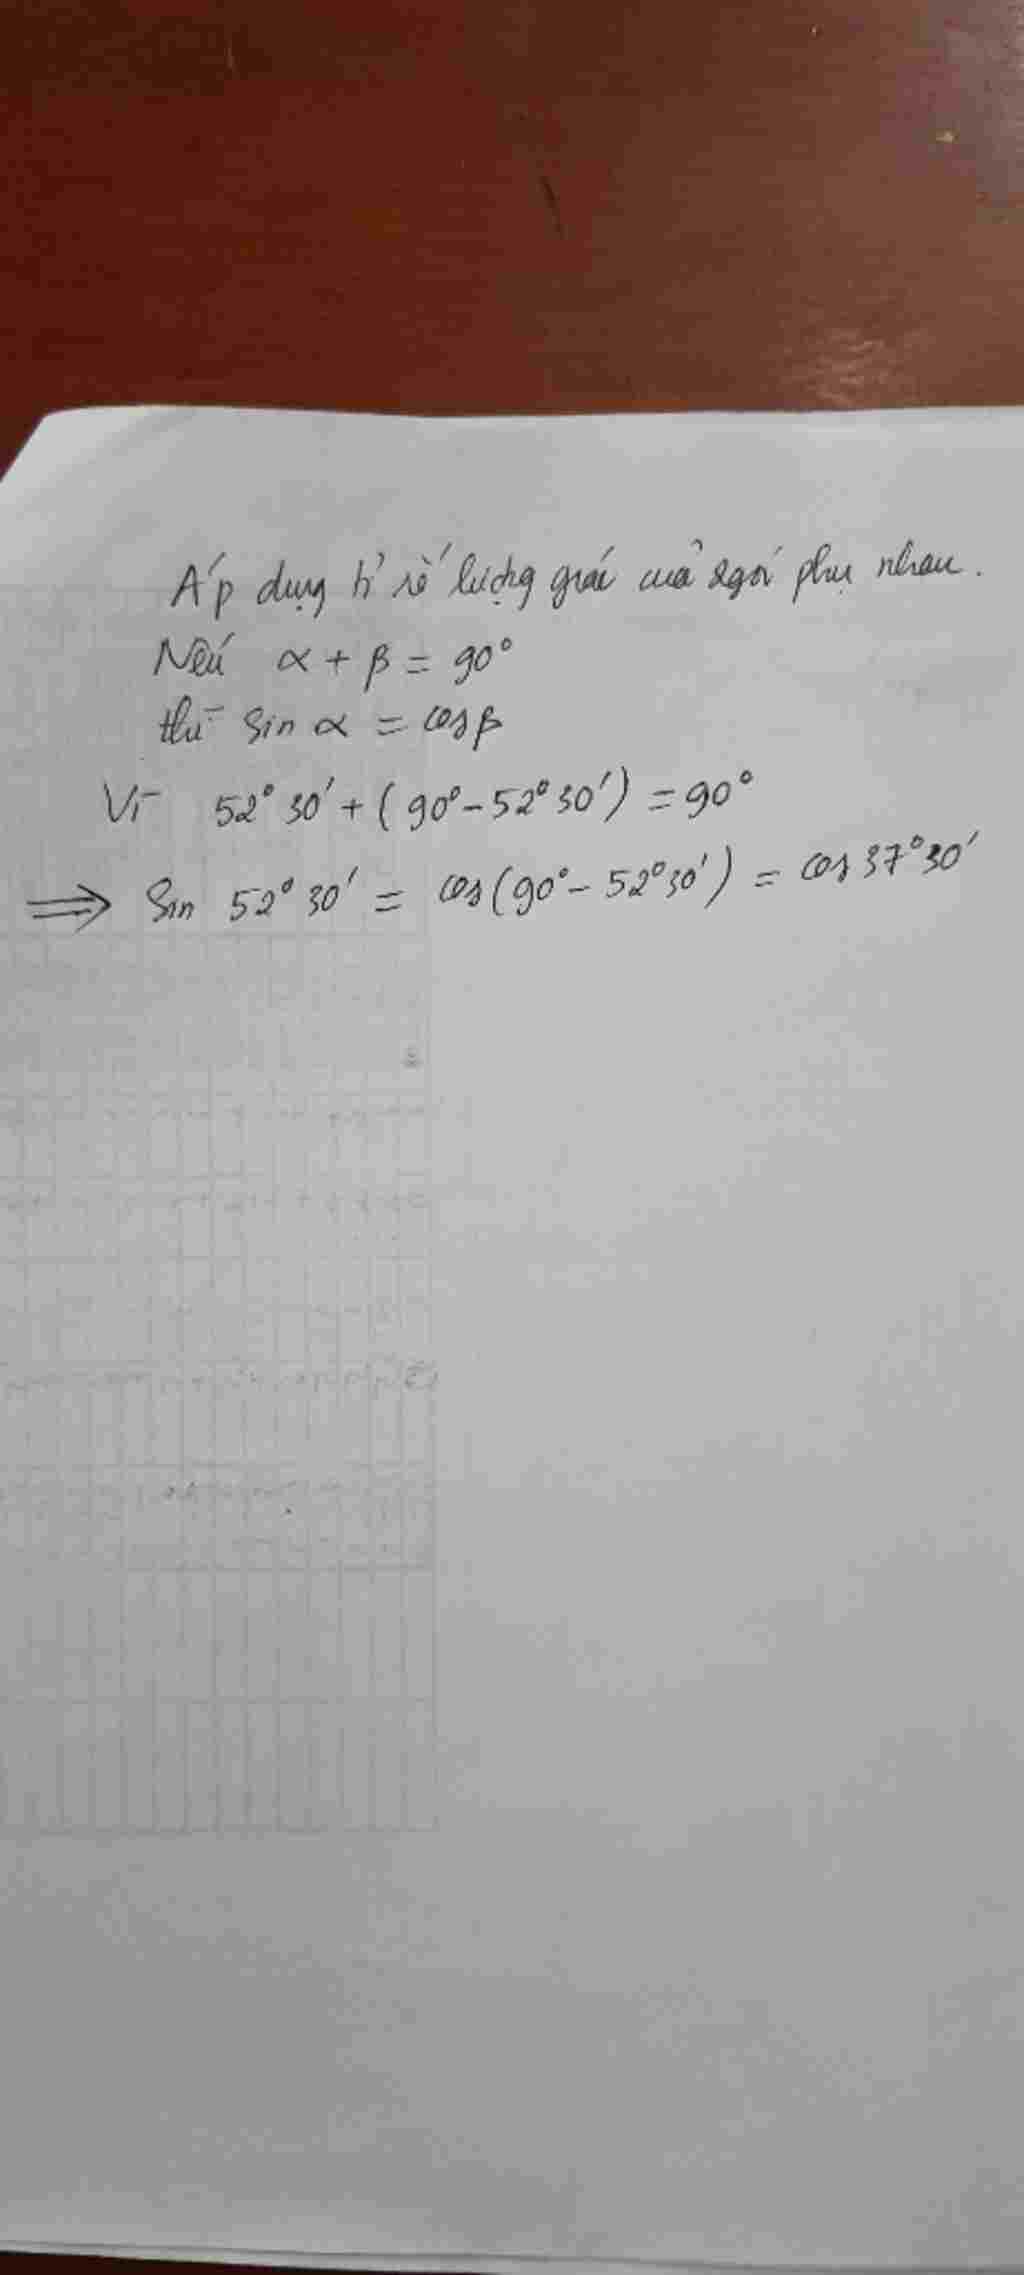 Áp dụng tỉ số lượng giác của 2 góc phụ nhau.
Nếu α + β = 90°
thì sin α = cos β
Vì 52° 30' + ( 90° - 52° 30' ) = 90°
⇒ Sin 52° 30' = cos (90° - 52° 30') = cos 37° 30'